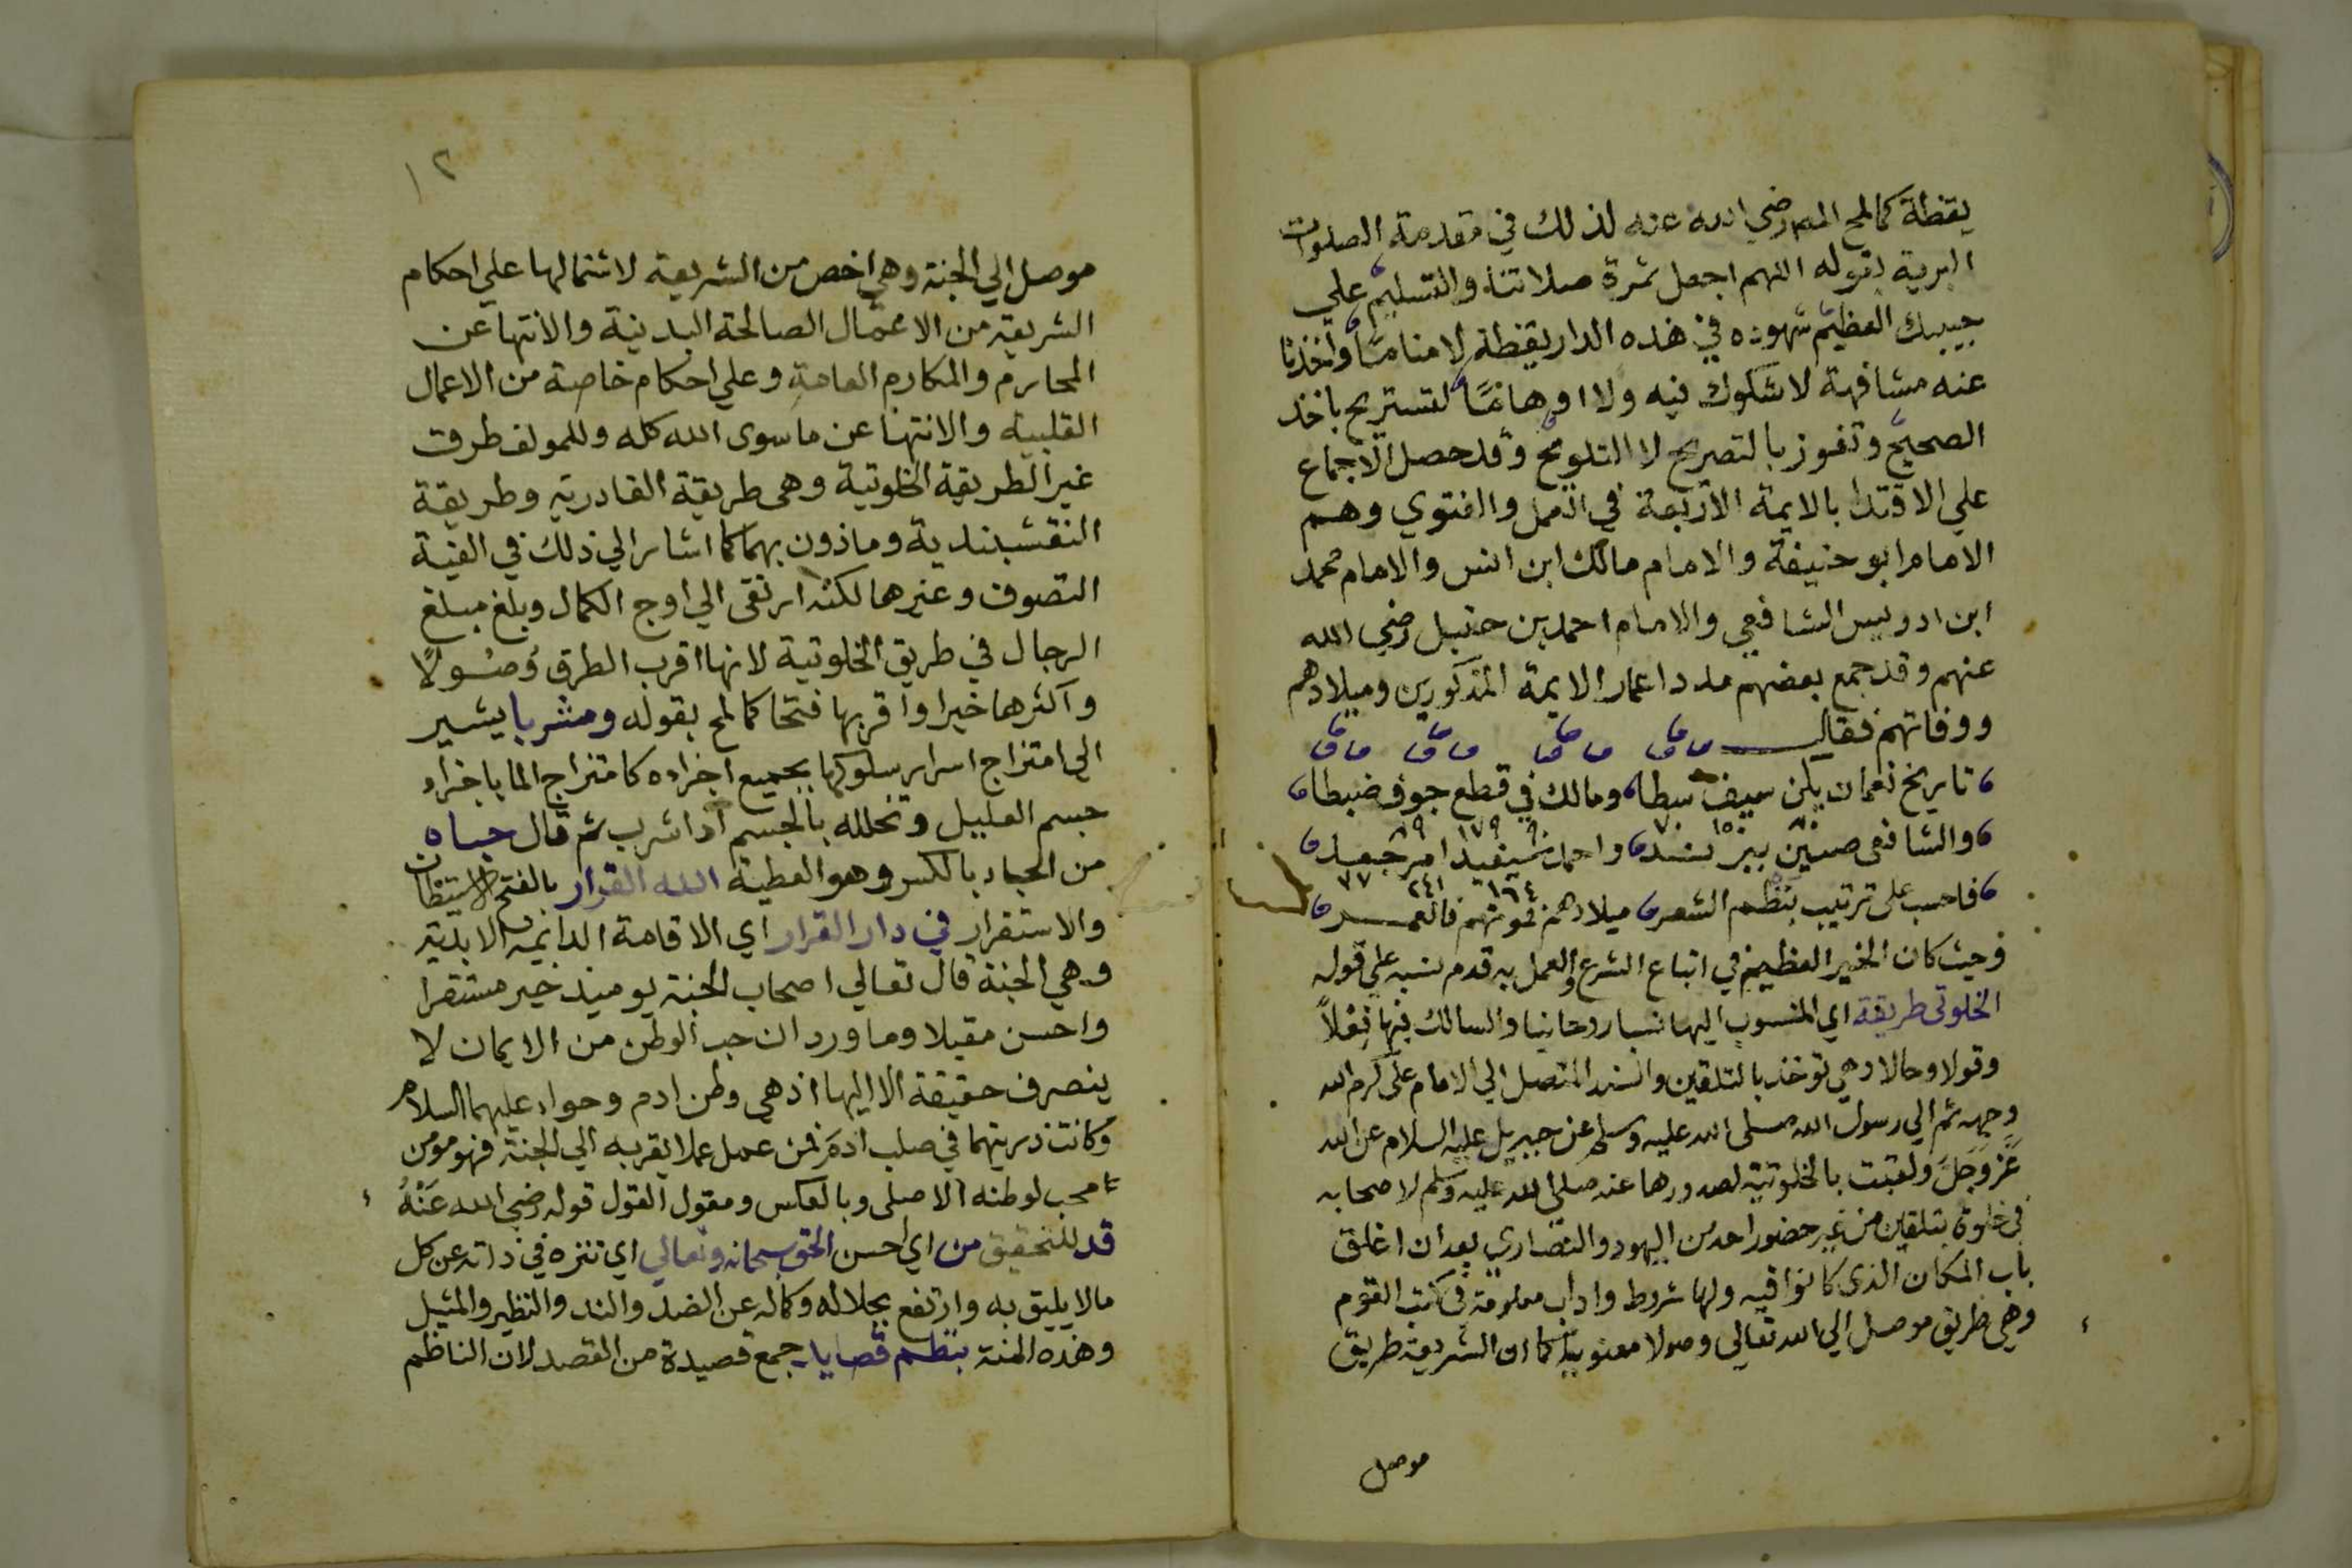 يقظة كما لمح المص رضي الله عنه لذلك في مقدمة الصلوات
البرية بقوله اللهم اجعل ثمرة صلاتنا والتسليم علي
حبيبك العظيم شهوده في هذه الدار يقظة لا مناما واخذنا
عنه مشافهة لا شكوك فيه ولا اوهاما لتستريح باخذ
الصحيح وتفوز بالتصريح لا التلويح وقد حصل الاجماع
علي الاقتدا بالايمة الاربعة في العمل والفتوي وهم
الامام ابو حنيفة والامام مالك ابن انس والامام محمد
ابن ادريس الشافعي والامام احمد بن حنبل رضي الله
عنهم وقد جمع بعضهم مدد اعمار الايمة المذكورين وميلادهم
ووفاتهم فقال
تاريخ نعمان يكن سيف سطا ومالك في قطع جوف ضبطا
٨٠ ١٥٠ ٧٠ ٩٠ ١٧٩ ٨٩
والشافعي صين ببر ند واحمد بسبق امر جعد
١٦٤ ٢٤١ ٧٧
فاحسب على ترتيب نظم الشعر ميلادهم فموتهم فالعمر
وحيث كان الخير العظيم في اتباع الشرع والعمل به قدم نسبه علي قوله
الخلوتي طريقة اي المنسوب اليها نسبا روحانيا والسالك فيها فعلاً
وقولا وحالا وهي توخذ بالتلقين والسند المتصل الي الامام على كرم الله
وجهه ثم الي رسول الله صلى الله عليه وسلم عن جبريل عليه السلام عن الله
عَزَّ وَجَلَّ ولقبت بالخلوتية لصدورها عنه صلى الله عليه وسلم لاصحابه
في خلوة بتلقين من غير حضور احد من اليهود والنصاري بعد ان اغلق
باب المكان الذي كانوا فيه ولها شروط واداب معلومة في كتب القوم
وهي طريق موصل الي الله تعالي وصولا معنويا كما ان الشريعة طريق
موصل
١٢
موصل الي الجنة وهي اخص من الشريعة لاشتمالها علي احكام
الشريعة من الاعمال الصالحة البدنية والانتها عن
المحارم والمكارم العامة وعلي احكام خاصة من الاعمال
القلبية والانتها عن ما سوى الله كله وللمولف طرق
غير الطريقة الخلوتية وهي طريقة القادرية وطريقة
النقشبندية وماذون بهما كما اشار الي ذلك في الفية
التصوف وغيرها لكنه ارتقى الي اوج الكمال وبلغ مبلغ
الرجال في طريق الخلوتية لانها اقرب الطرق وُصُولاً
واكثرها خيرا واقربها فتحا كما لمح بقوله ومشربا يشير
الي امتزاج اسرار سلوكها بجميع اجزاءه كامتزاج الما باجزاء
جسم العليل وتخلله بالجسم اذا شرب ثم قال حباه
من الحباء بالكسر وهو العطية الله القرار بالفتح الاستيطان
والاستقرار في دار القرار اي الاقامة الدايمة الابدية
وهي الجنة قال تعالي اصحاب الجنة يوميذ خير مستقرا
واحسن مقيلا وما ورد ان حب الوطن من الايمان لا
ينصرف حقيقة الا اليها اذ هي وطن ادم وحواء عليهما السلام
وكانت ذريتهما في صلب ادم فمن عمل عملا يقربه الي الجنة فهو مومن
محب لوطنه الاصلى وبالعكس ومقول القول قوله رضي الله عَنْهُ
قد للتحقيق من اي احسن الحق سبحانه وتعالي اي تنزه في ذاته عن كل
مالا يليق به وارتفع بجلاله وكماله عن الضد والند والنظير والمثيل
وهذه المنة بنظم قصايد جمع قصيدة من القصد لان الناظم